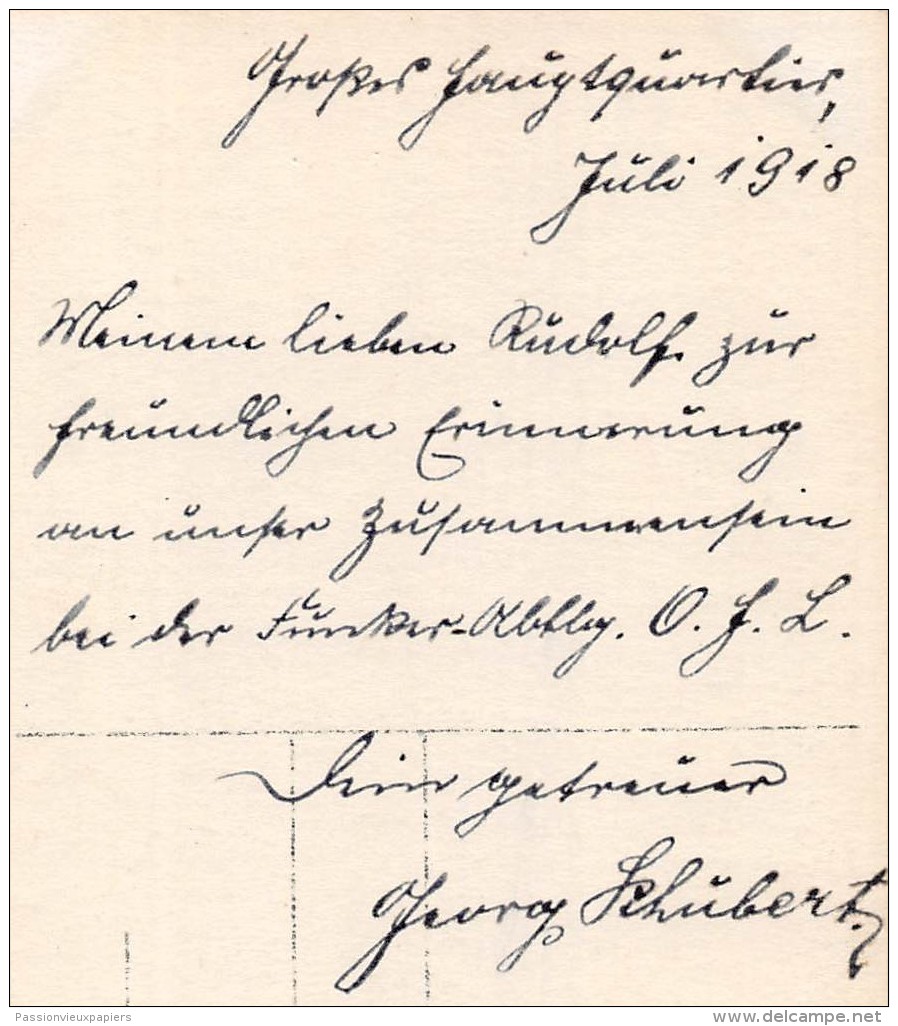 Großes Hauptquartier,
Juli 1918
Meinem lieben Rudolf zur
freundlichen Erinnerung
an unser Zusammensein
bei der Funker-Abtlg. O. H. L.
Dein getreuer
Georg Schubert
Passionvieuxpapiers
www.delcampe.net